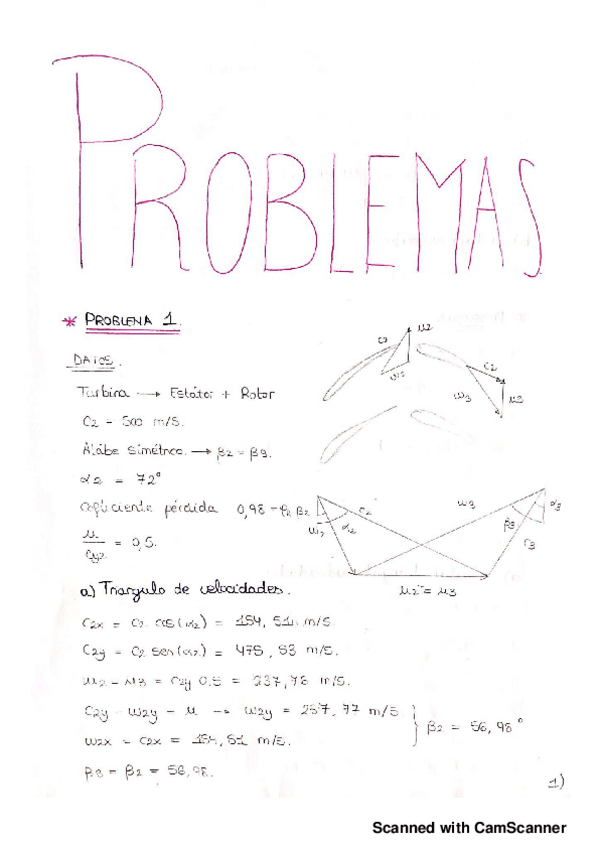 PROBLEMAS
* PROBLEMA 1.
DATOS.
Turbina → Estátor + Rotor
C2 = 500 m/s.
Álabe simétrico. → β2 = β3.
α2 = 72°
coeficiente pérdida 0,98 =
u/C2y = 0,5.
u2
C2
w2
C2
w3
u3
β2
w2
α2
C2
w3
β3
α3
C3
u2 = u3
a) Triangulo de velocidades.
C2x = C2 cos(α2) = 154,51 m/s
C2y = C2 sen(α2) = 475,53 m/s.
u2 = u3 = C2y 0.5 = 237,78 m/s.
C2y - w2y = u → w2y = 237,77 m/s
w2x = C2x = 154,51 m/s.
β2 = 56,98°
β3 = β2 = 56,98.
1)
Scanned with CamScanner